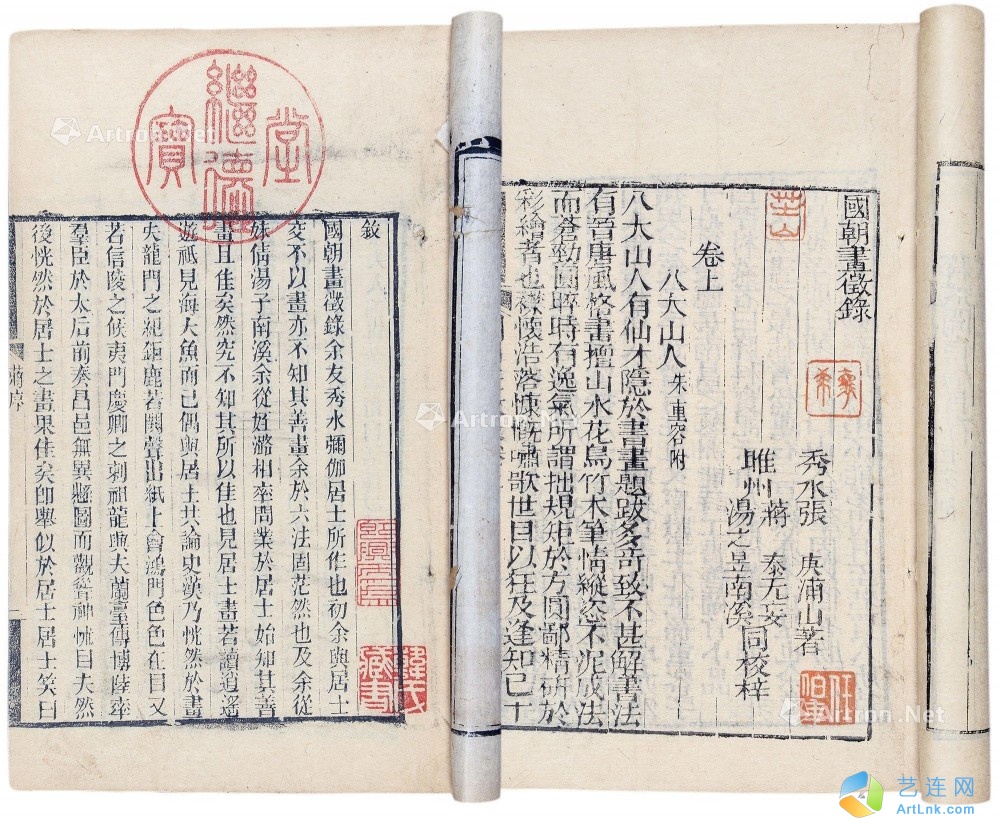 國朝畫徵錄
秀水張　庚浦山著
睢州蔣　泰无妄
湯之昱南溪
同校梓
卷上
八大山人朱重容附
八大山人有仙才隱於書畫題跋多奇致不甚解書法
有晉唐風格畫擅山水花鳥竹木筆情縱恣不泥成法
而蒼勁圓晬時有逸氣所謂拙規矩於方圓鄙精研於
彩繪者也襟懷浩落慷慨嘯歌世目以狂及逢知已十
敘
國朝畫徵錄余友秀水彌伽居士所作也初余與居士
交不以畫亦不知其善畫余於六法固茫然也及余從
妹倩湯子南溪余從姪潞相率問業於居士始知其善
畫且佳矣然究不知其所以佳也見居士畫若讀逍遙
遊祇見海大魚而已偶與居士共論史漢乃恍然於畫
夫龍門之紀鉅鹿若聞聲出紙上會鴻門色色在目又
若信陵之候夷門慶卿之刺祖龍與夫蘭臺傳博陸率
羣臣於太后前奏昌邑無異懸圖而觀聳神怵目夫然
後恍然於居士之畫果佳矣卽舉似於居士居士笑曰
蔣序
繼德堂寶
韓氏藏書
Artron.Net
Artron.Net
Artron.Net
Artron.Net
艺连网
ArtLnk.com